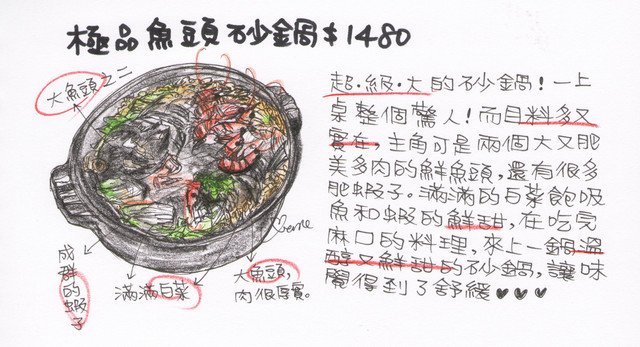 極品魚頭砂鍋$1480
大魚頭之二
超·級·大的砂鍋!一上
桌整個驚人!而且料多又
實在,主角可是兩個大又肥
美多肉的鮮魚頭,還有很多
肥蝦子。滿滿的白菜飽吸
魚和蝦的鮮甜,在吃完
麻口的料理,來上一鍋溫
醇又鮮甜的砂鍋,讓味
覺得到了舒緩♥♥♥
成群的蝦子
滿滿白菜
大魚頭,
肉很厚實。